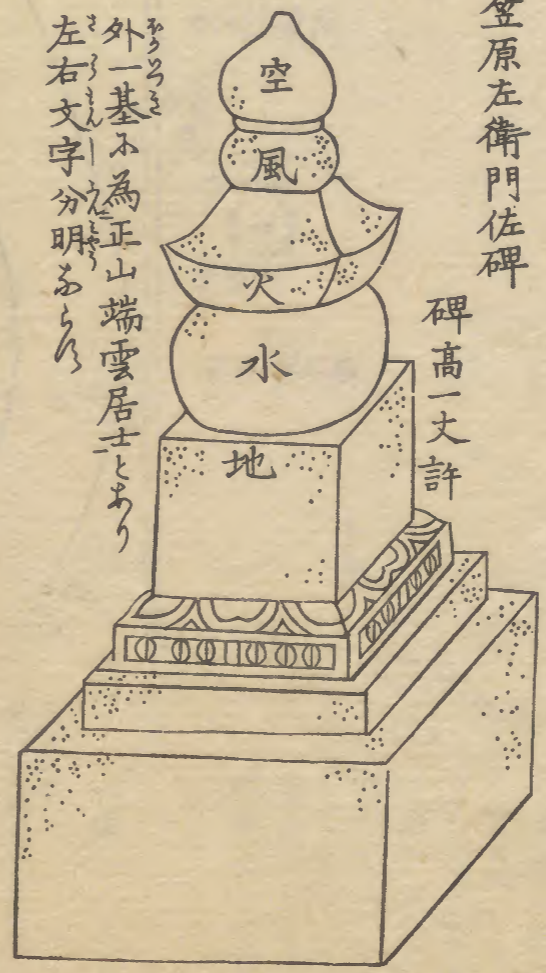 笠原左衛門佐碑
碑高一丈許
空
風
火
水
地
外一基ニ為正山端雲居士とあり
左右文字分明ならす